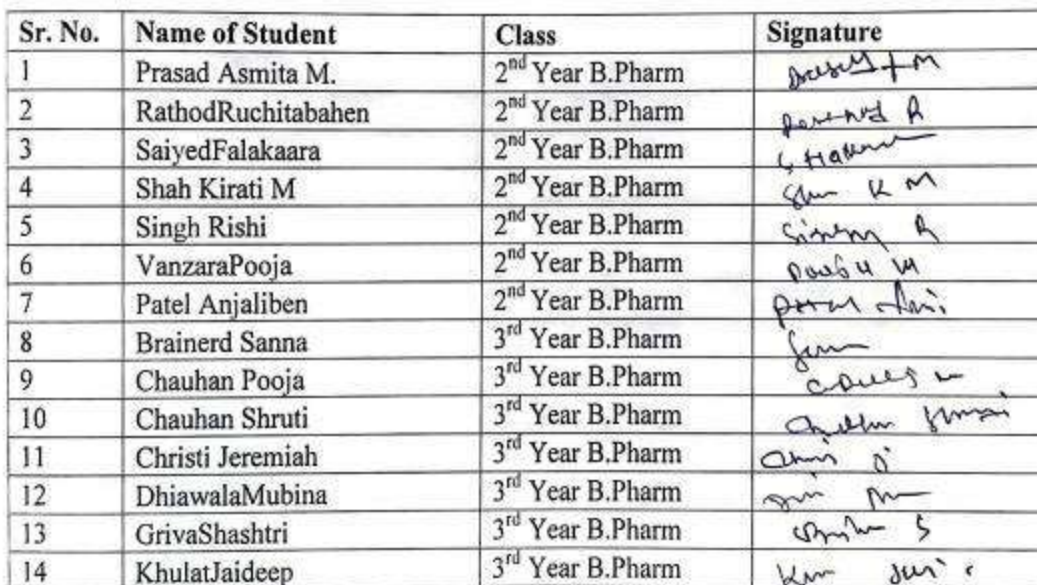 Sr. No. Name of Student Class Signature
1 Prasad Asmita M. 2nd Year B.Pharm
2 RathodRuchitabahen 2nd Year B.Pharm R
3 SaiyedFalakaara 2nd Year B.Pharm
4 Shah Kirati M 2nd Year B.Pharm K M
5 Singh Rishi 2nd Year B.Pharm R
6 VanzaraPooja 2nd Year B.Pharm
7 Patel Anjaliben 2nd Year B.Pharm
8 Brainerd Sanna 3rd Year B.Pharm
9 Chauhan Pooja 3rd Year B.Pharm
10 Chauhan Shruti 3rd Year B.Pharm
11 Christi Jeremiah 3rd Year B.Pharm
12 DhiawalaMubina 3rd Year B.Pharm
13 GrivaShashtri 3rd Year B.Pharm S
14 KhulatJaideep 3rd Year B.Pharm